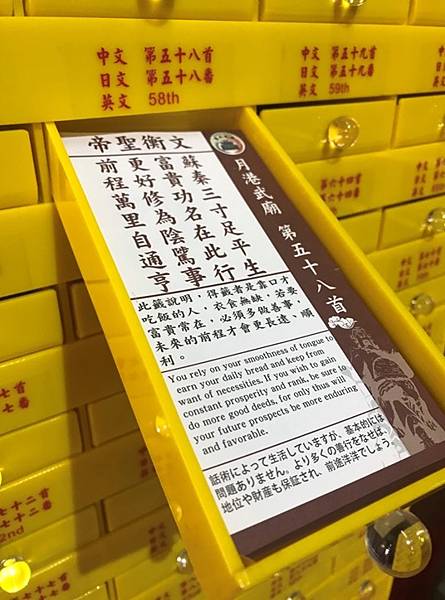 中文 第五十八首
日文 第五十八番
英文 58th
中文 第五十九首
日文 第五十九番
英文 59th
月港武廟 第五十八首
文衡聖帝
蘇秦三寸足平生
富貴功名在此行
更好修為陰騭事
前程萬里自通亨
此籤說明，得籤者是靠口才
吃飯的人，衣食無缺，若要
富貴常在，必須多做善事，
未來的前程才會更長遠，順
利。
You rely on your smoothness of tongue to
earn your daily bread and keep from
want of necessities. If you wish to gain
constant prosperity and rank, be sure to
do more good deeds, for only thus will
your future prospects be more enduring
and favorable.
話術によって生活していますが、基本的には
問題ありません。より多くの善行をなせば、
地位や財産も保証され、前途洋洋でしょう。
第六十四首